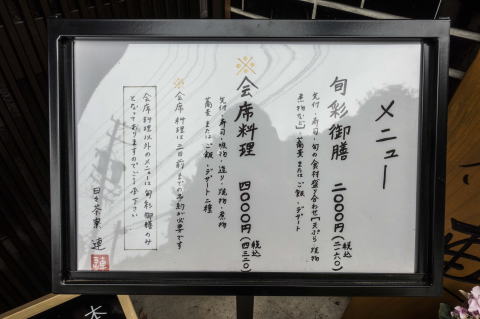 メニュー
旬彩御膳 二〇〇〇円(税込二一六〇)
先付・寿司・旬の食材盛り合わせ[天ぷら 焼物
煮物など]・蕎麦またはご飯・デザート
※会席料理 四〇〇〇円(税込四三二〇)
先付・寿司・吸物・造り・焼物・煮物
蕎麦またはご飯・デザート二種
※会席料理は二日前までの予約が必要です
会席料理以外のメニューは旬彩御膳のみ
となっておりますのでご了承下さい
日々茶寮 連
連